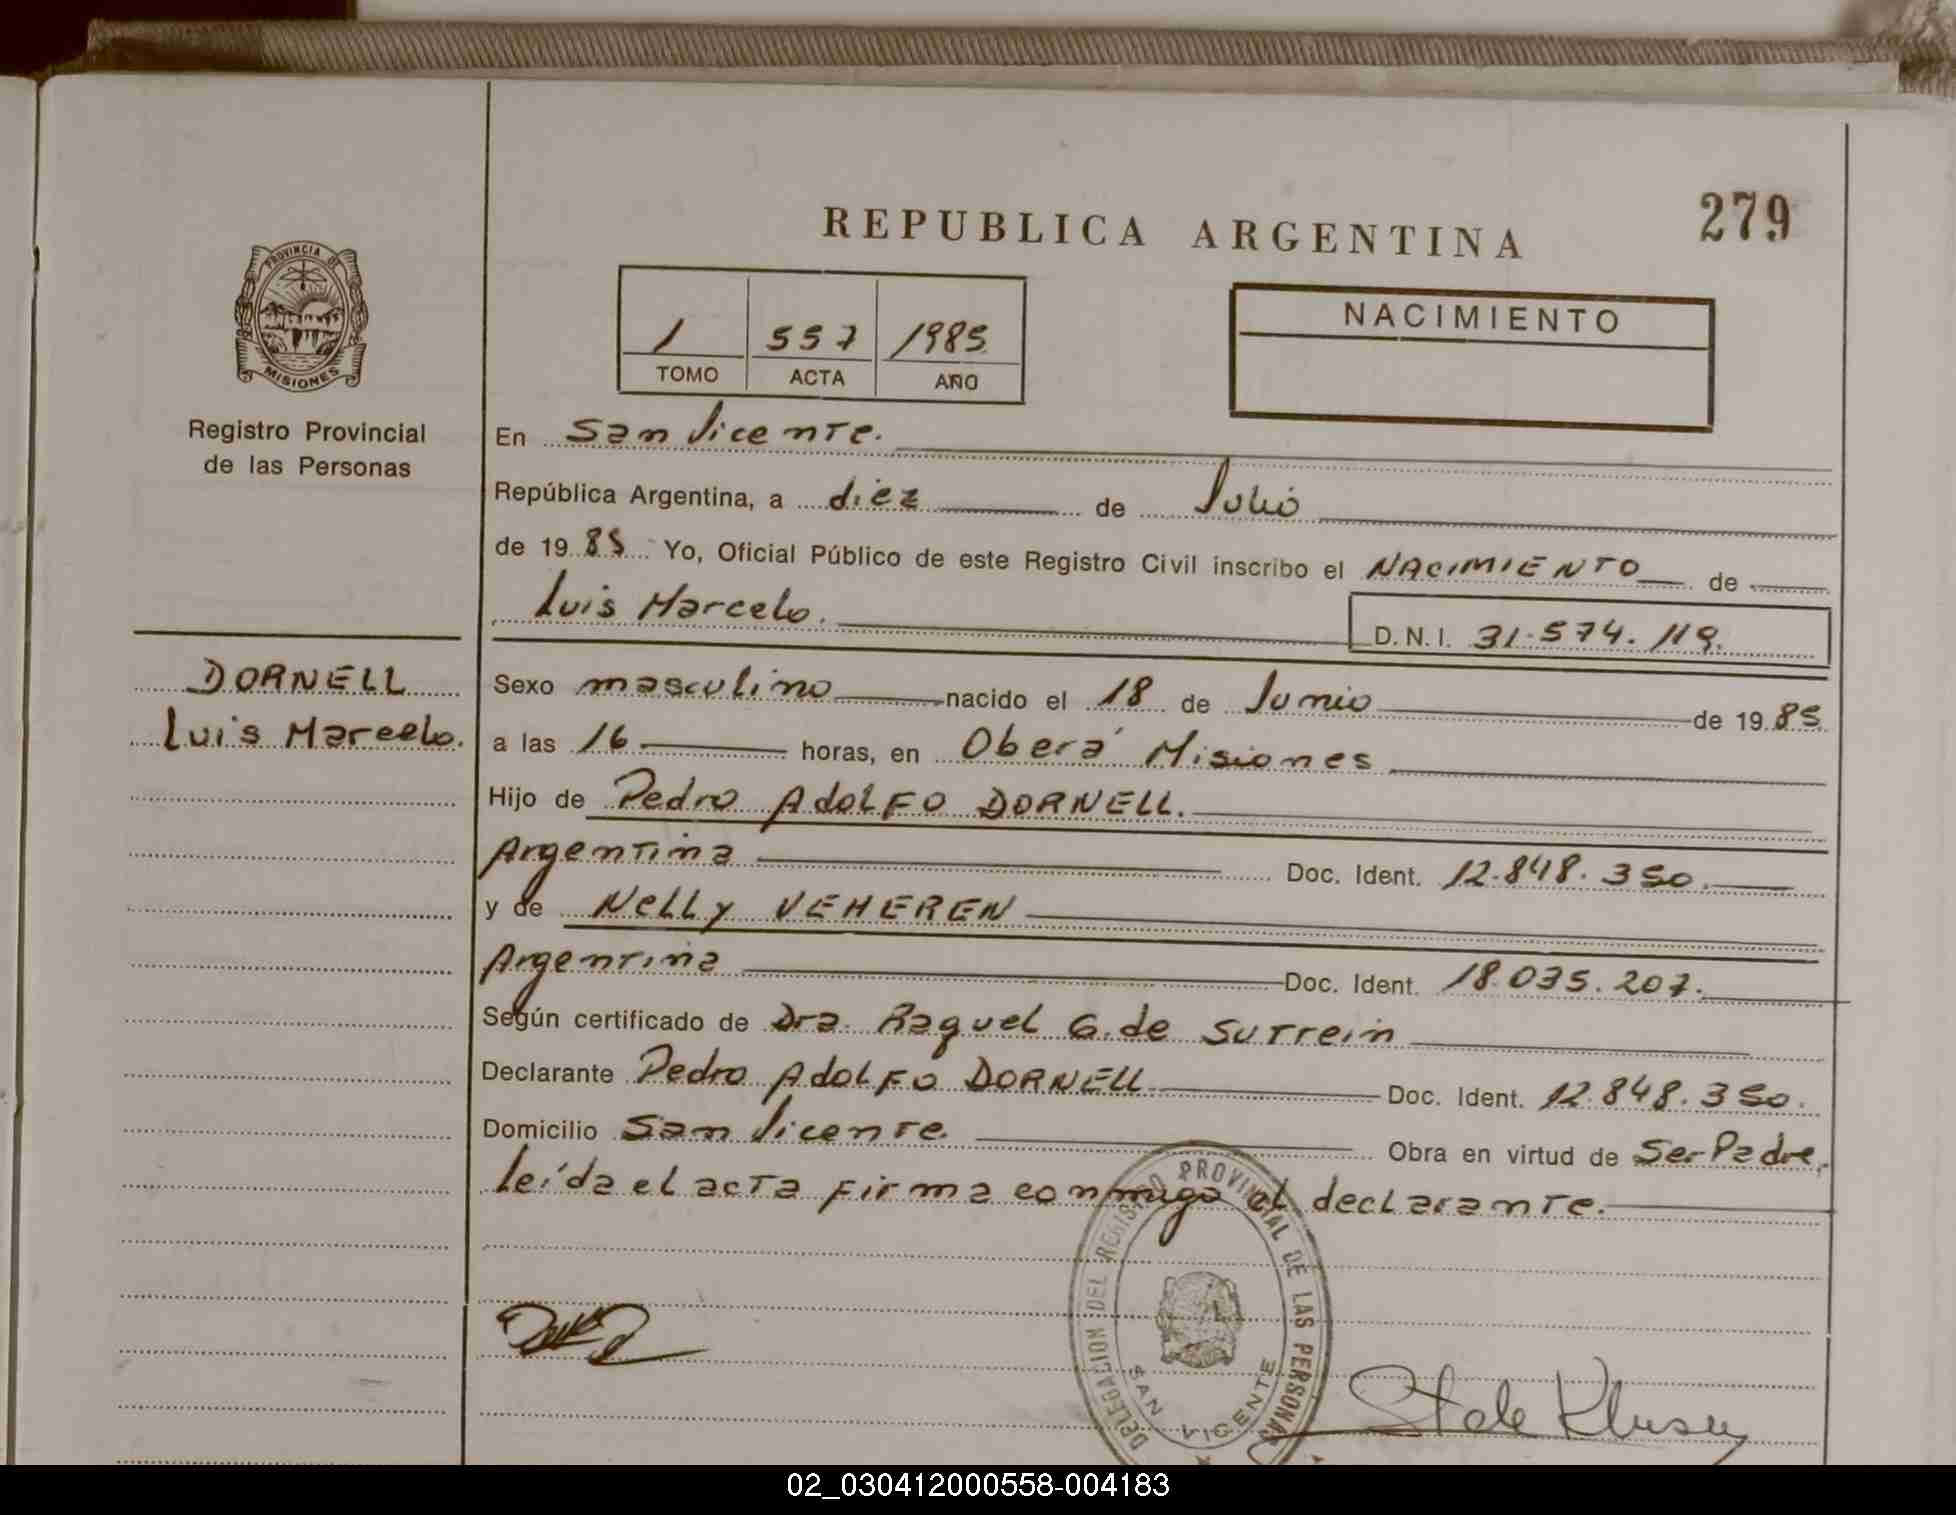 279
REPUBLICA ARGENTINA
PROVINCIA DE
MISIONES
Registro Provincial
de las Personas
1 557 1985
TOMO ACTA AÑO
NACIMIENTO
En San Vicente.
República Argentina, a diez de Julio
de 19 85 Yo, Oficial Público de este Registro Civil inscribo el NACIMIENTO de
Luis Marcelo.
D.N.I. 31.574.119.
DORNELL
Luis Marcelo.
Sexo masculino nacido el 18 de Junio de 19 85
a las 16 horas, en Oberá Misiones
Hijo de Pedro Adolfo DORNELL.
Argentina Doc. Ident. 12.848.350.
y de Nelly VEHEREN
Argentina Doc. Ident. 18.035.207.
Según certificado de Dra. Raquel G. de Surrein
Declarante Pedro Adolfo DORNELL Doc. Ident. 12.848.350.
Domicilio San Vicente. Obra en virtud de Ser Padre,
leída el acta firma conmigo el declarante.
DELEGACION DEL REGISTRO PROVINCIAL DE LAS PERSONAS
SAN VICENTE
02_030412000558-004183